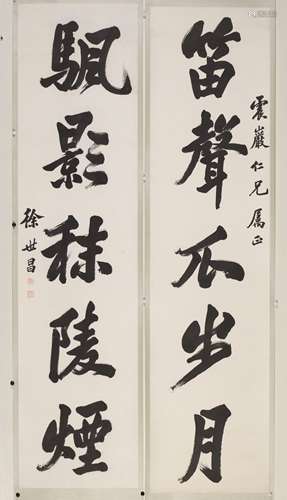 笛聲瓜步月
震巖仁兄屬正
颿影秣陵煙
徐世昌